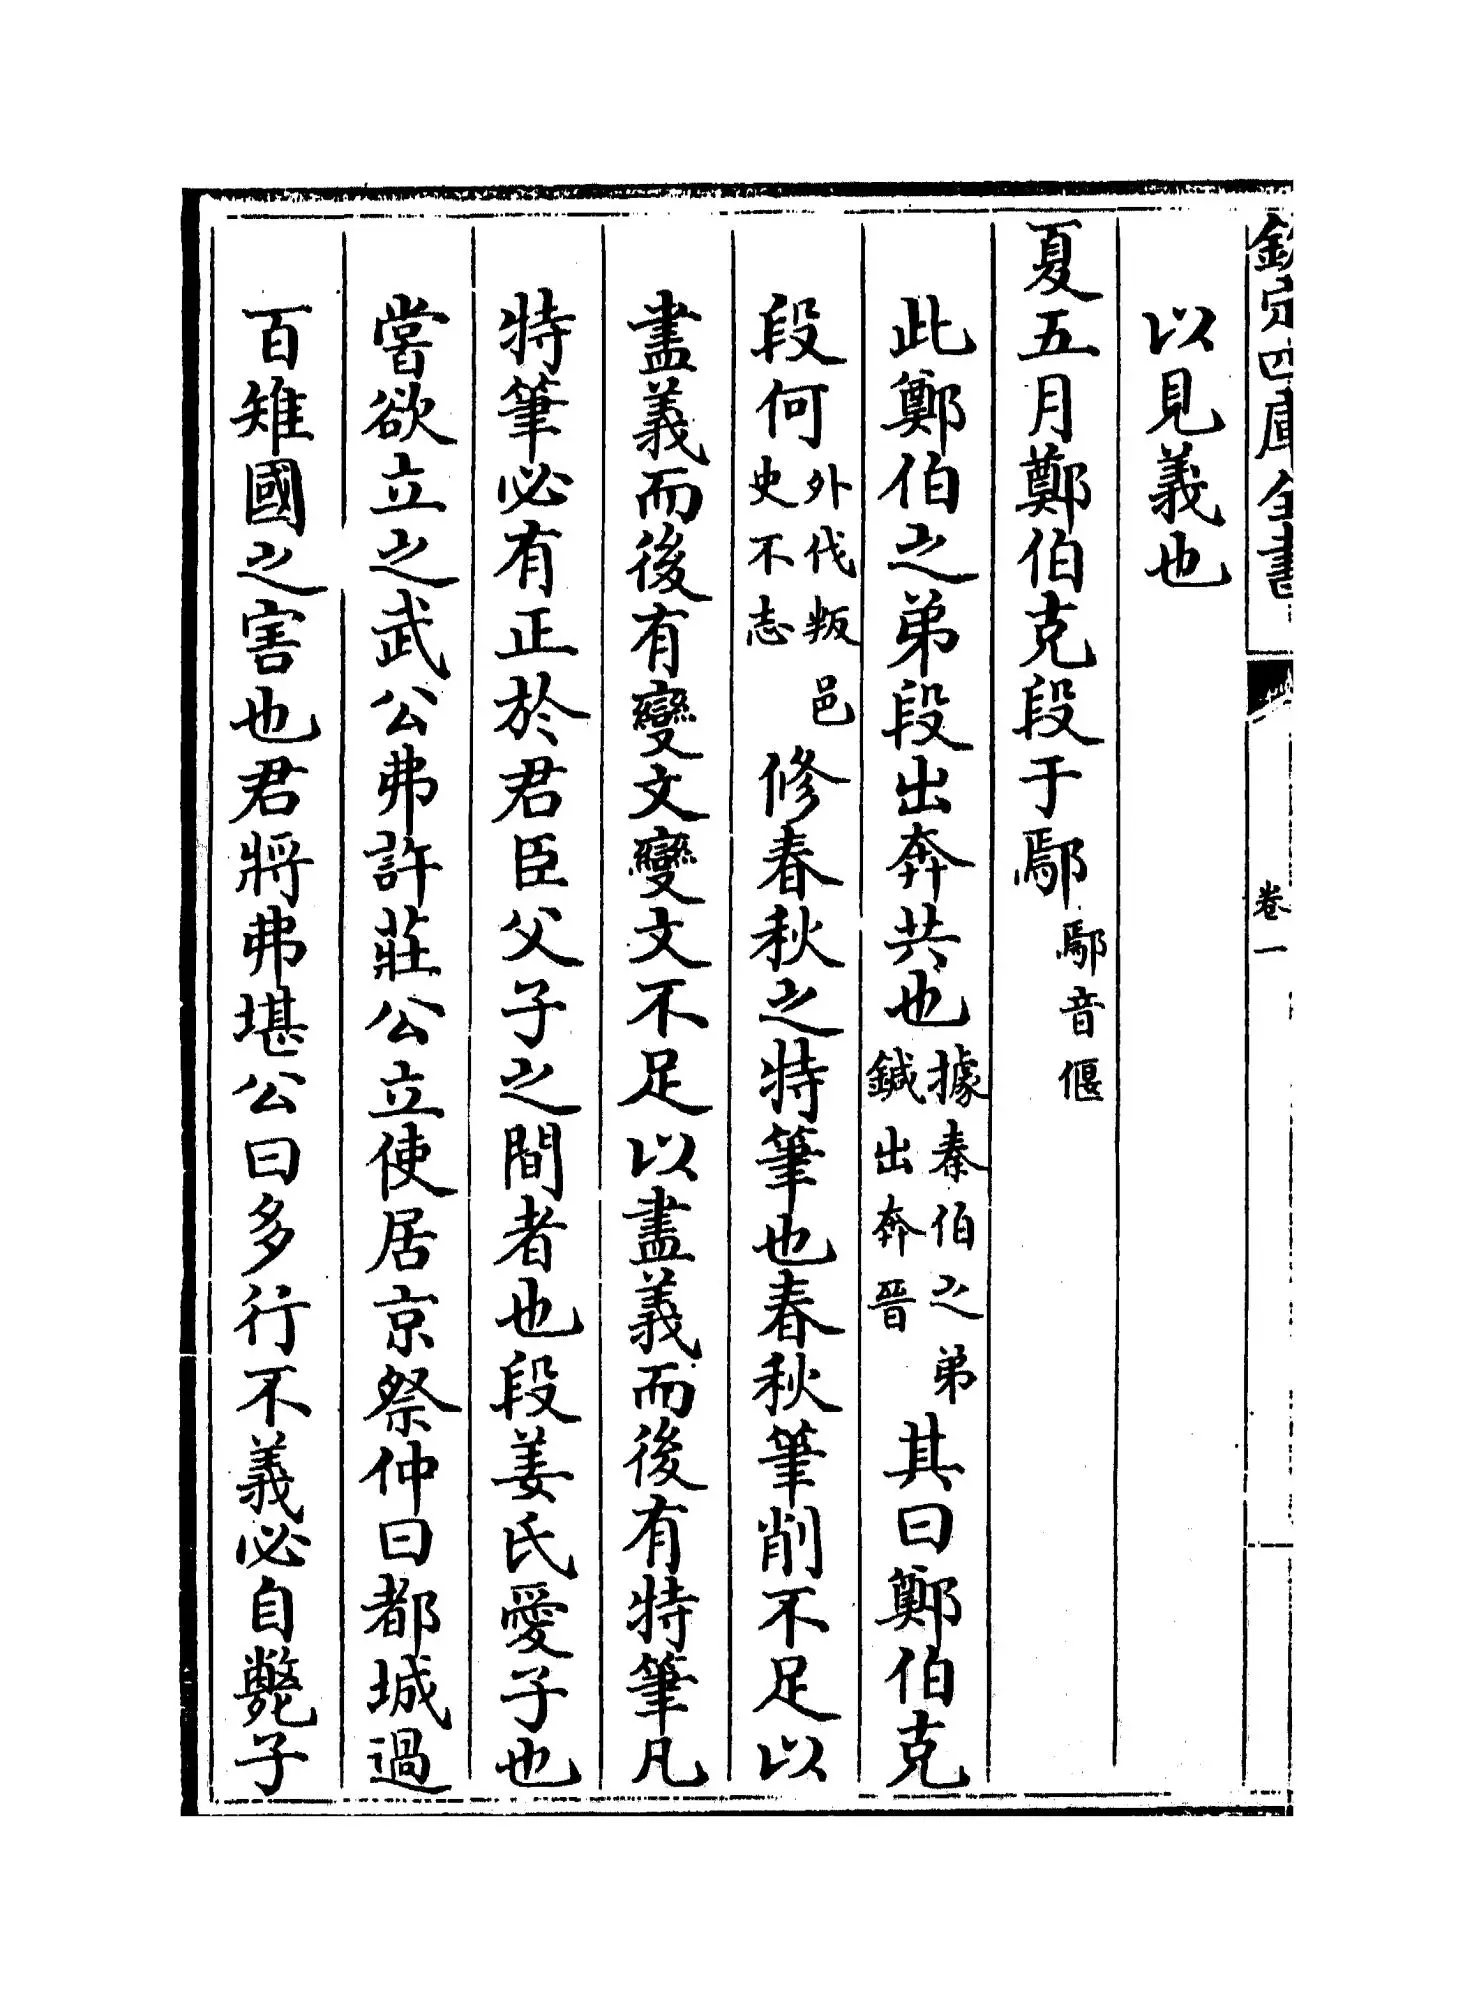 欽定四庫全書
卷一
以見義也
夏五月鄭伯克段于鄢鄢音偃
此鄭伯之弟段出奔共也據秦伯之弟鍼出奔晉其曰鄭伯克
段何外伐叛邑史不志修春秋之特筆也春秋筆削不足以
盡義而後有變文變文不足以盡義而後有特筆凡
特筆必有正於君臣父子之間者也段姜氏愛子也
嘗欲立之武公弗許莊公立使居京祭仲曰都城過
百雉國之害也君將弗堪公曰多行不義必自斃子